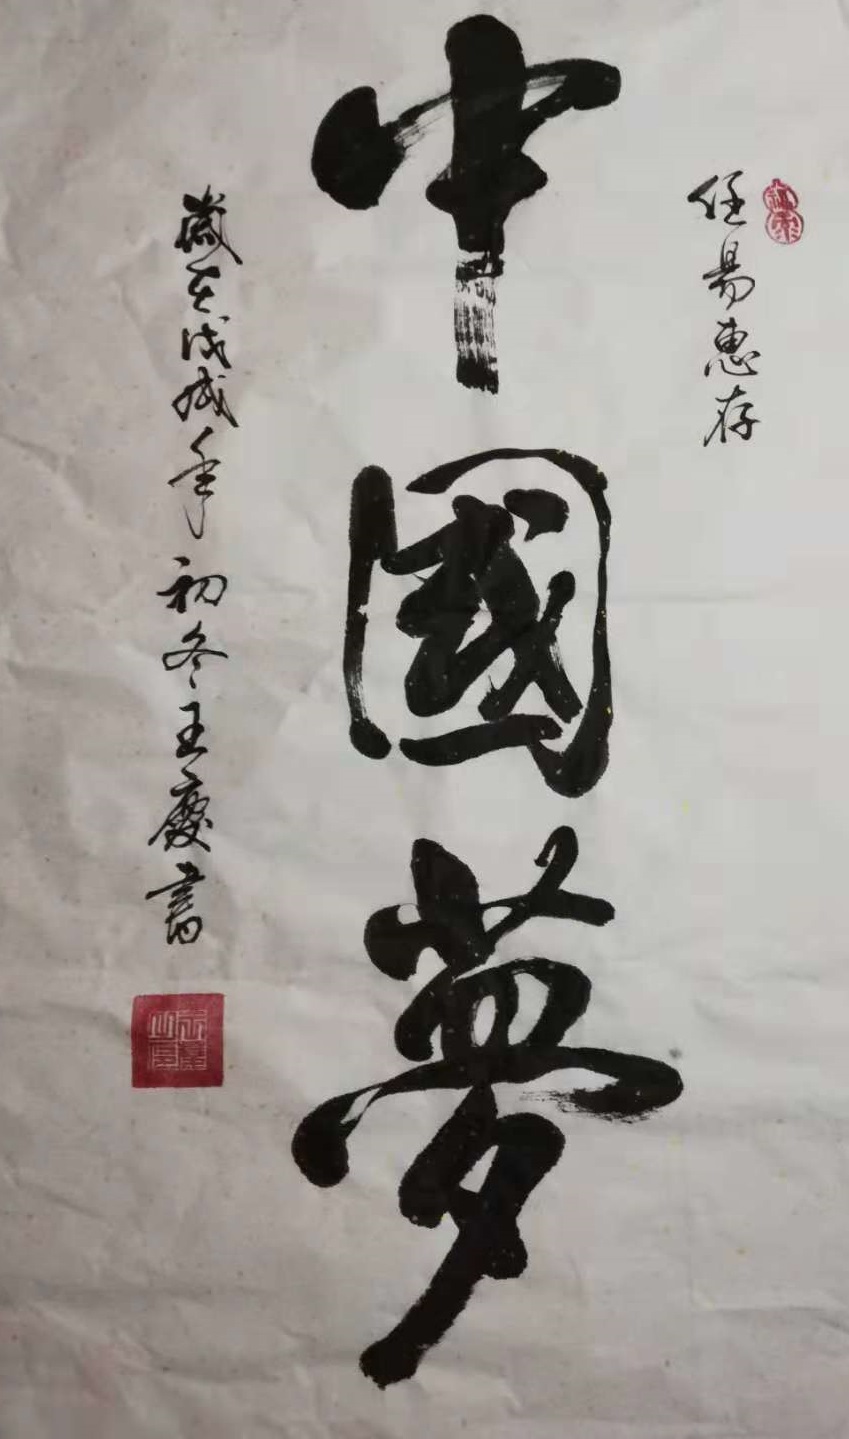 任易惠存
中國夢
歲在戊戌年初冬王慶書